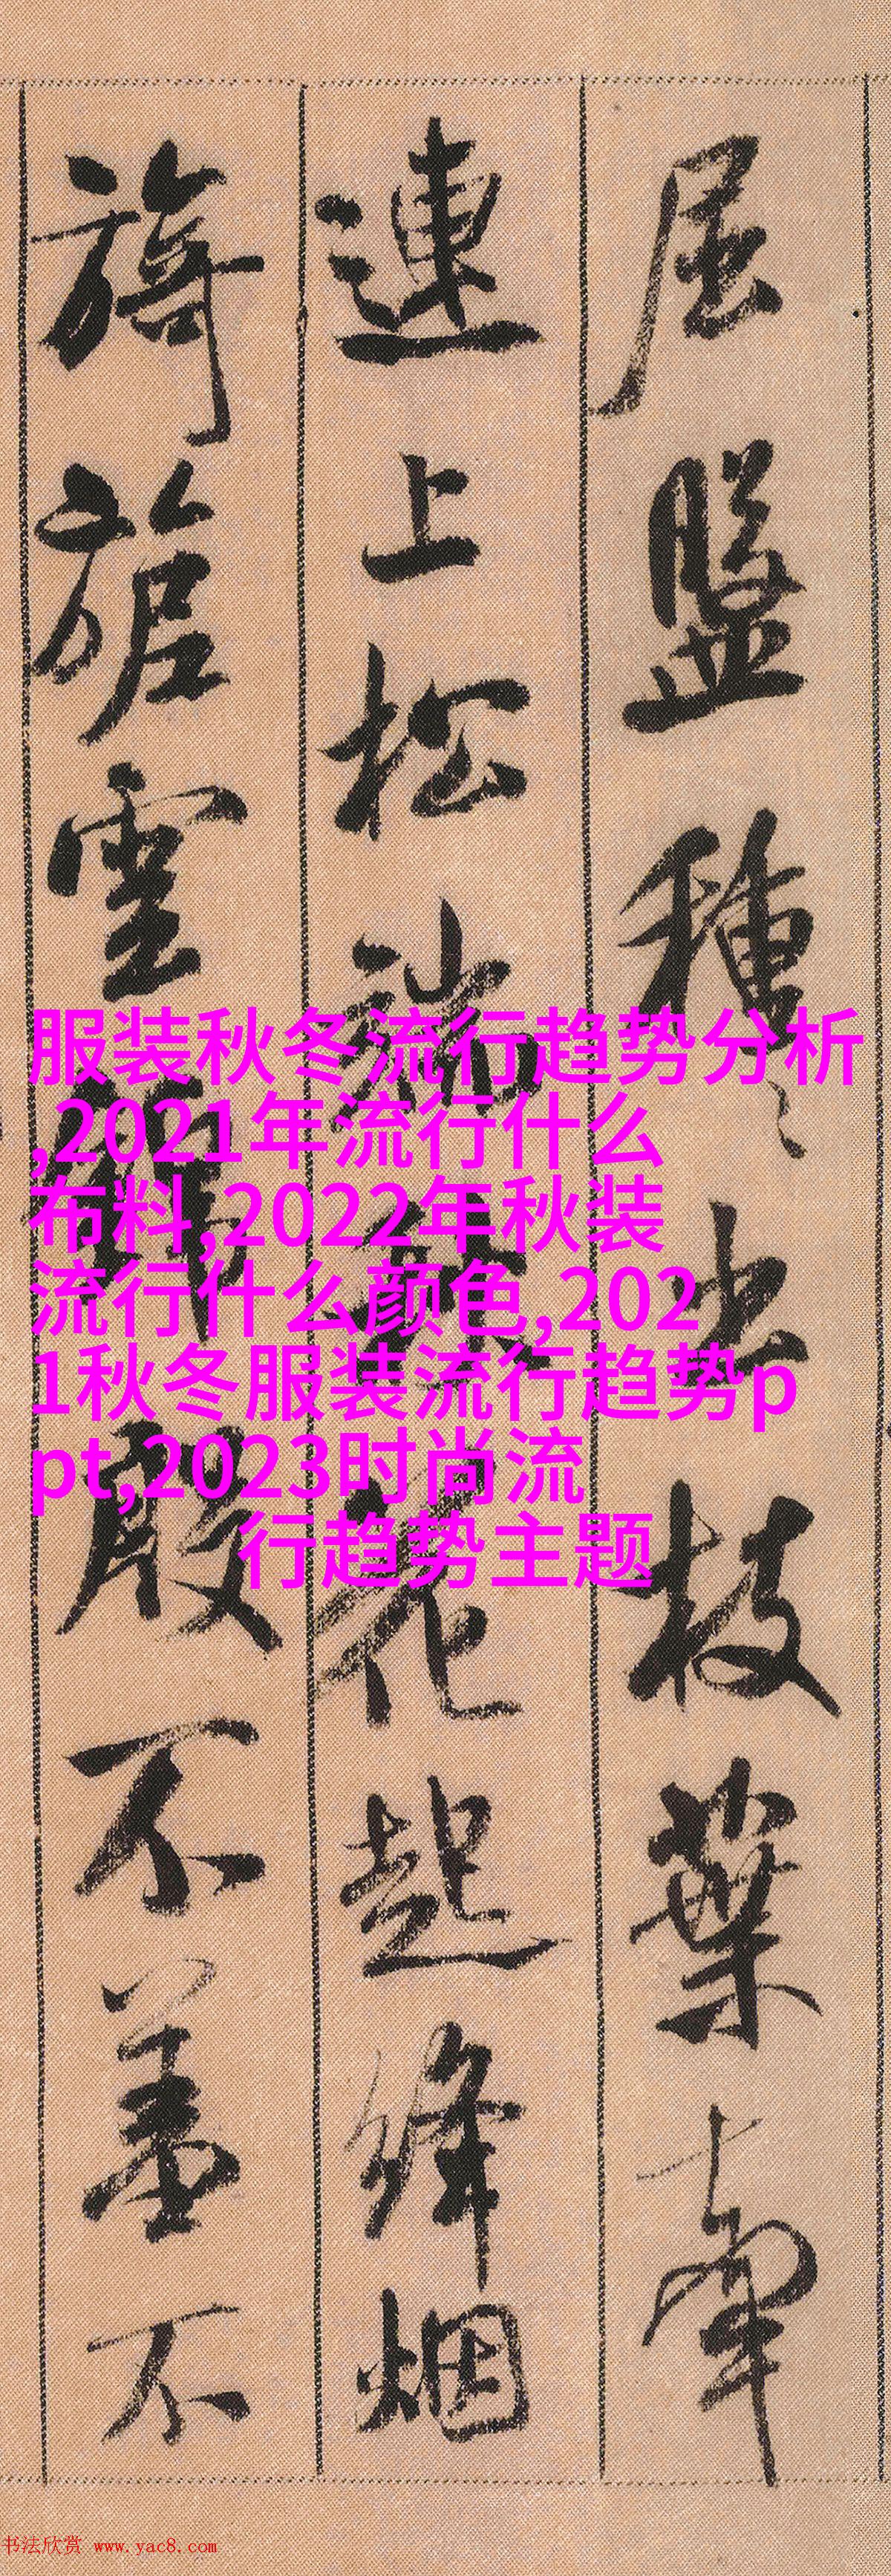 屈盤種〻出枝葉牽
連上松端秋花起絳烟
旖旎雲錦殷不羞不
服装秋冬流行趋势分析
,2021年流行什么
布料,2022年秋装
流行什么颜色,202
1秋冬服装流行趋势p
pt,2023时尚流
行趋势主题
书法欣赏 www.yac8.com